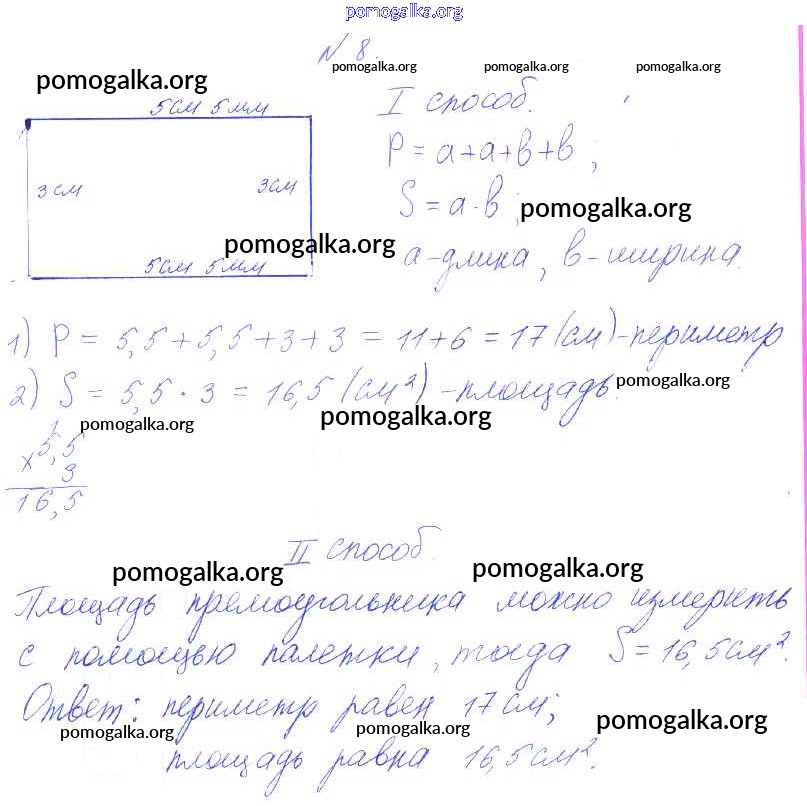 pomogalka.org
N 8.
pomogalka.org pomogalka.org pomogalka.org
pomogalka.org
5см 5мм
I способ.
P = a+a+b+b;
3 см 3см
S = a·b;
pomogalka.org
pomogalka.org
a-длина, b-ширина.
5см 5мм
1) P = 5,5+5,5+3+3 = 11+6 = 17 (см)-периметр
2) S = 5,5 · 3 = 16,5 (см²) -площадь.
pomogalka.org
pomogalka.org
pomogalka.org
1
×5,5
3
16,5
II способ.
pomogalka.org pomogalka.org
Площадь прямоугольника можно измерить
с помощью палетки, тогда S = 16,5см².
Ответ: периметр равен 17 см;
pomogalka.org pomogalka.org pomogalka.org
площадь равна 16,5см².